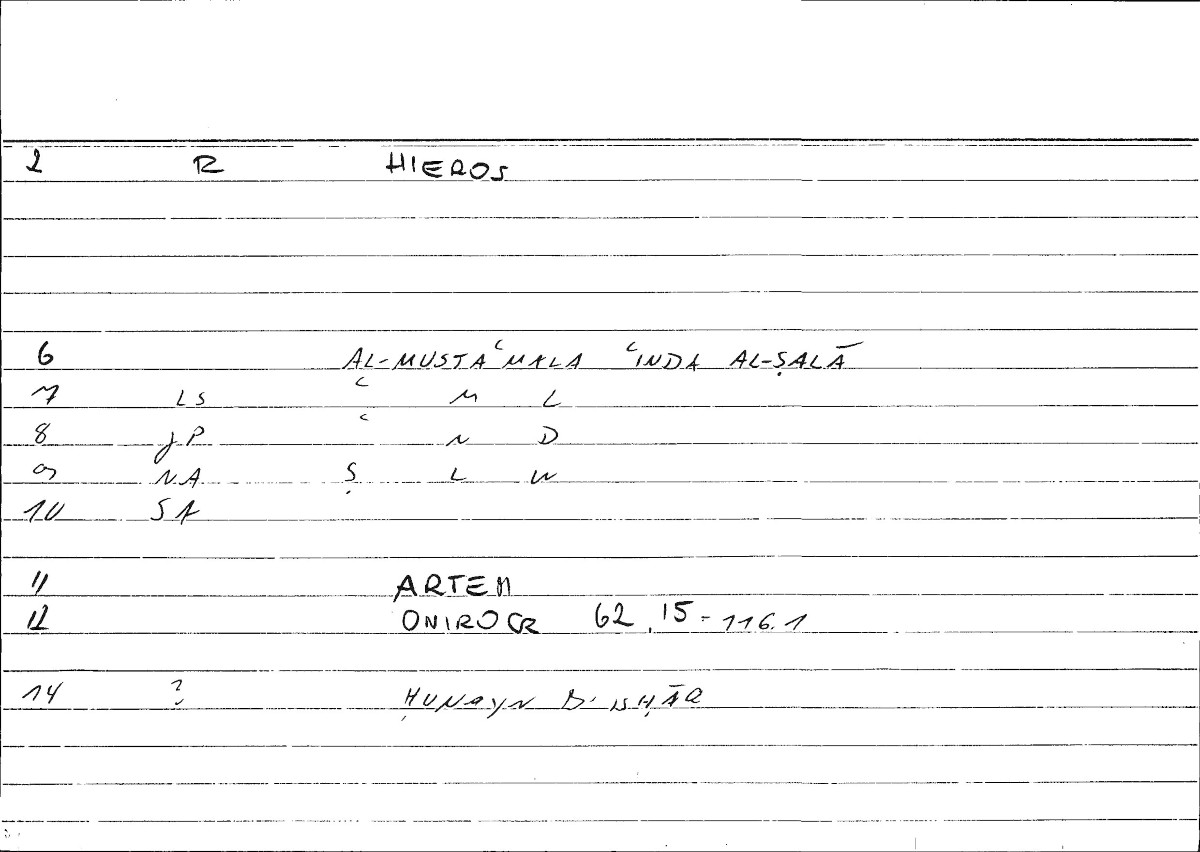 2 R HIEROS
6 AL-MUSTAʿMALA ʿINDA AL-ṢALĀ
7 LS ʿ M L
8 JP ʿ N D
9 NA Ṣ L W
10 SA
11 ARTEM
12 ONIROCR 62.15-116.1
14 ? ḤUNAYN B. ISḤĀQ